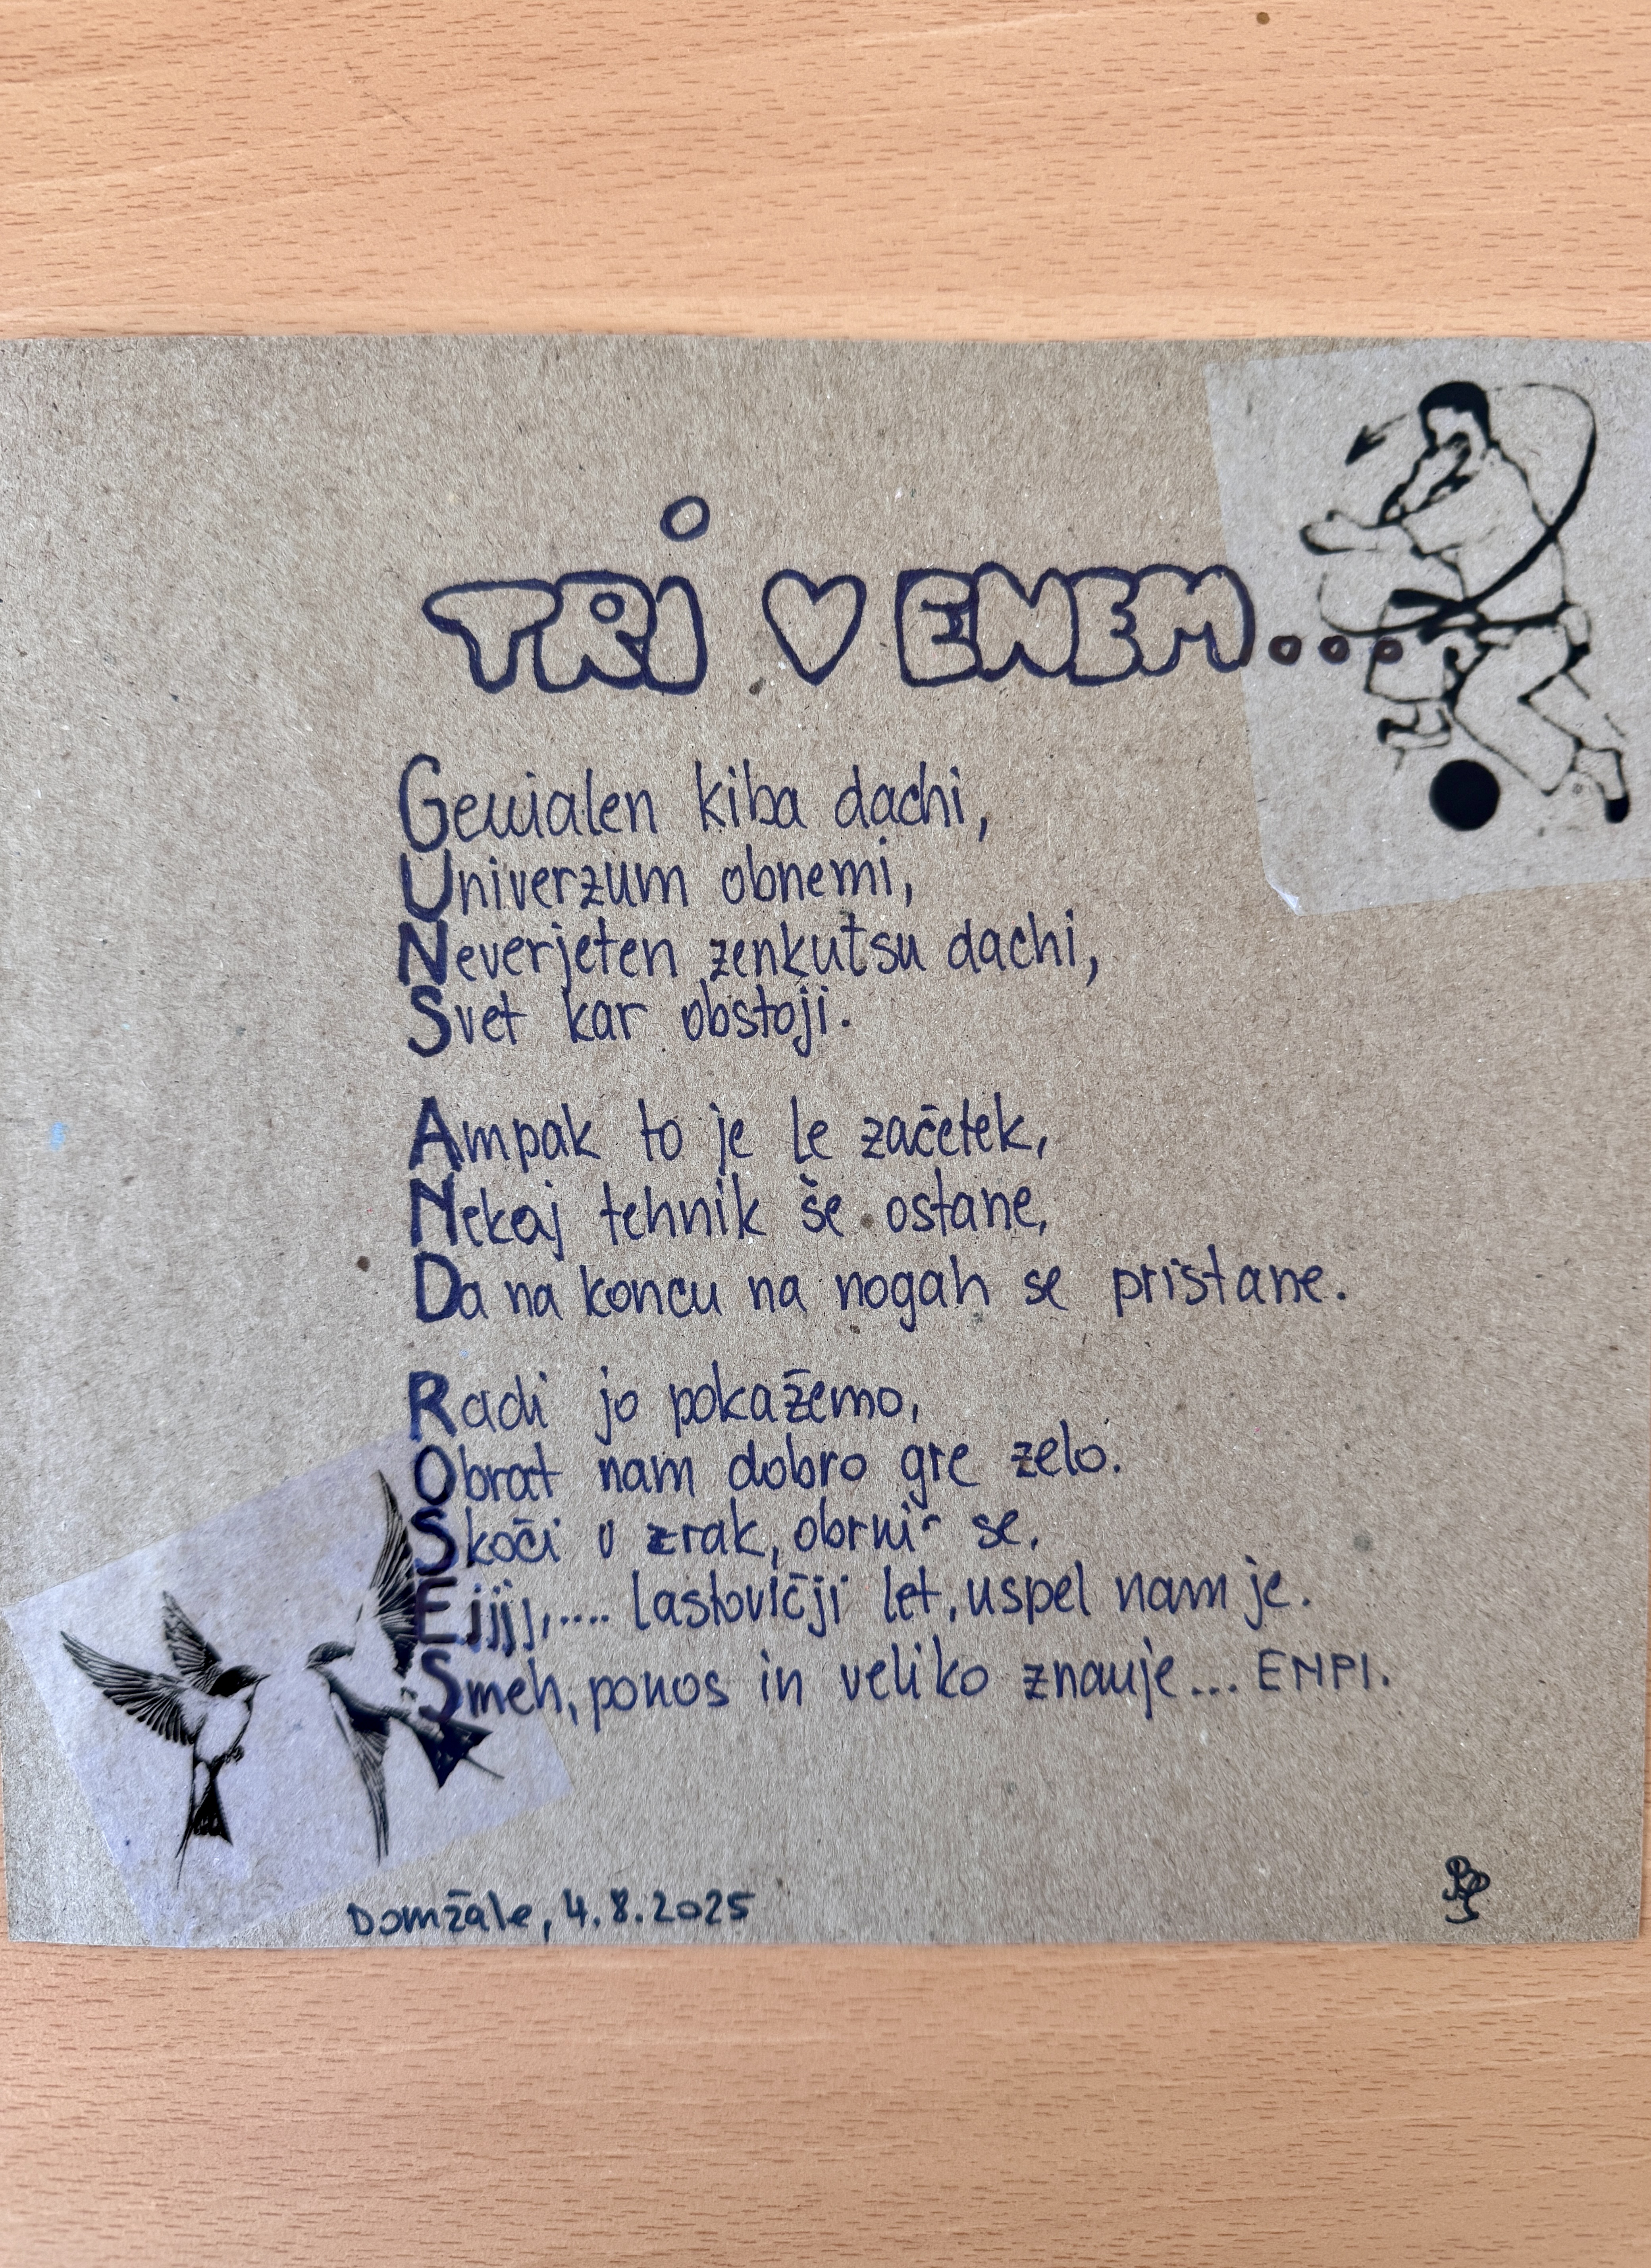 TRI V ENEM...
Genialen kiba dachi,
Univerzum obnemi,
Neverjeten zenkutsu dachi,
Svet kar obstoji.
Ampak to je le začetek,
Nekaj tehnik še ostane,
Da na koncu na nogah se pristane.
Radi jo pokažemo,
Obrat nam dobro gre zelo.
Skoči v zrak, obrni se,
Ejjjj,.... lastovičji let, uspel nam je.
Smeh, ponos in veliko znanje... ENPI.
Domžale, 4.8.2025